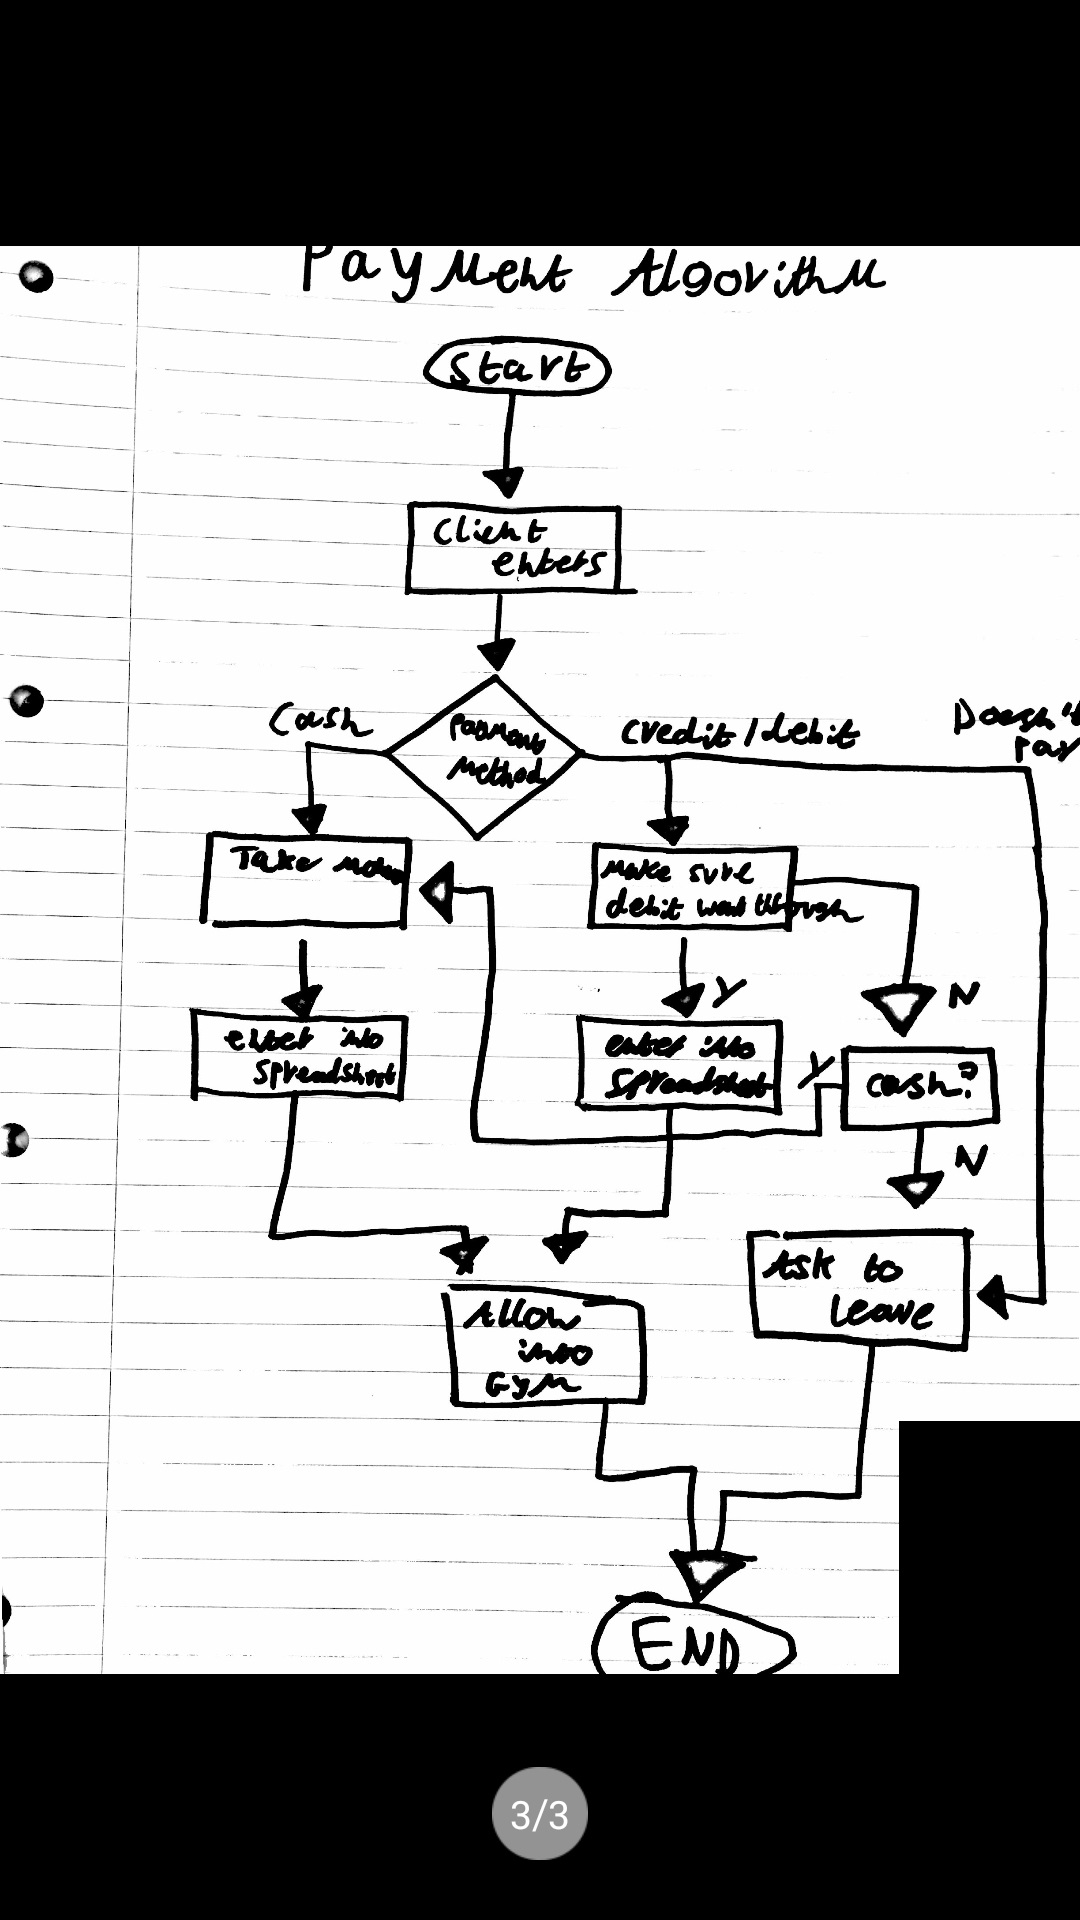 Payment Algorithm
Start
Client
enters
Cash
Payment
Method
credit/debit
Doesn't
pay
Take money
Make sure
debit went through
Y
N
enter into
spreadsheet
enter into
spreadsheet
Y
cash?
N
Ask to
leave
Allow
into
Gym
END
3/3